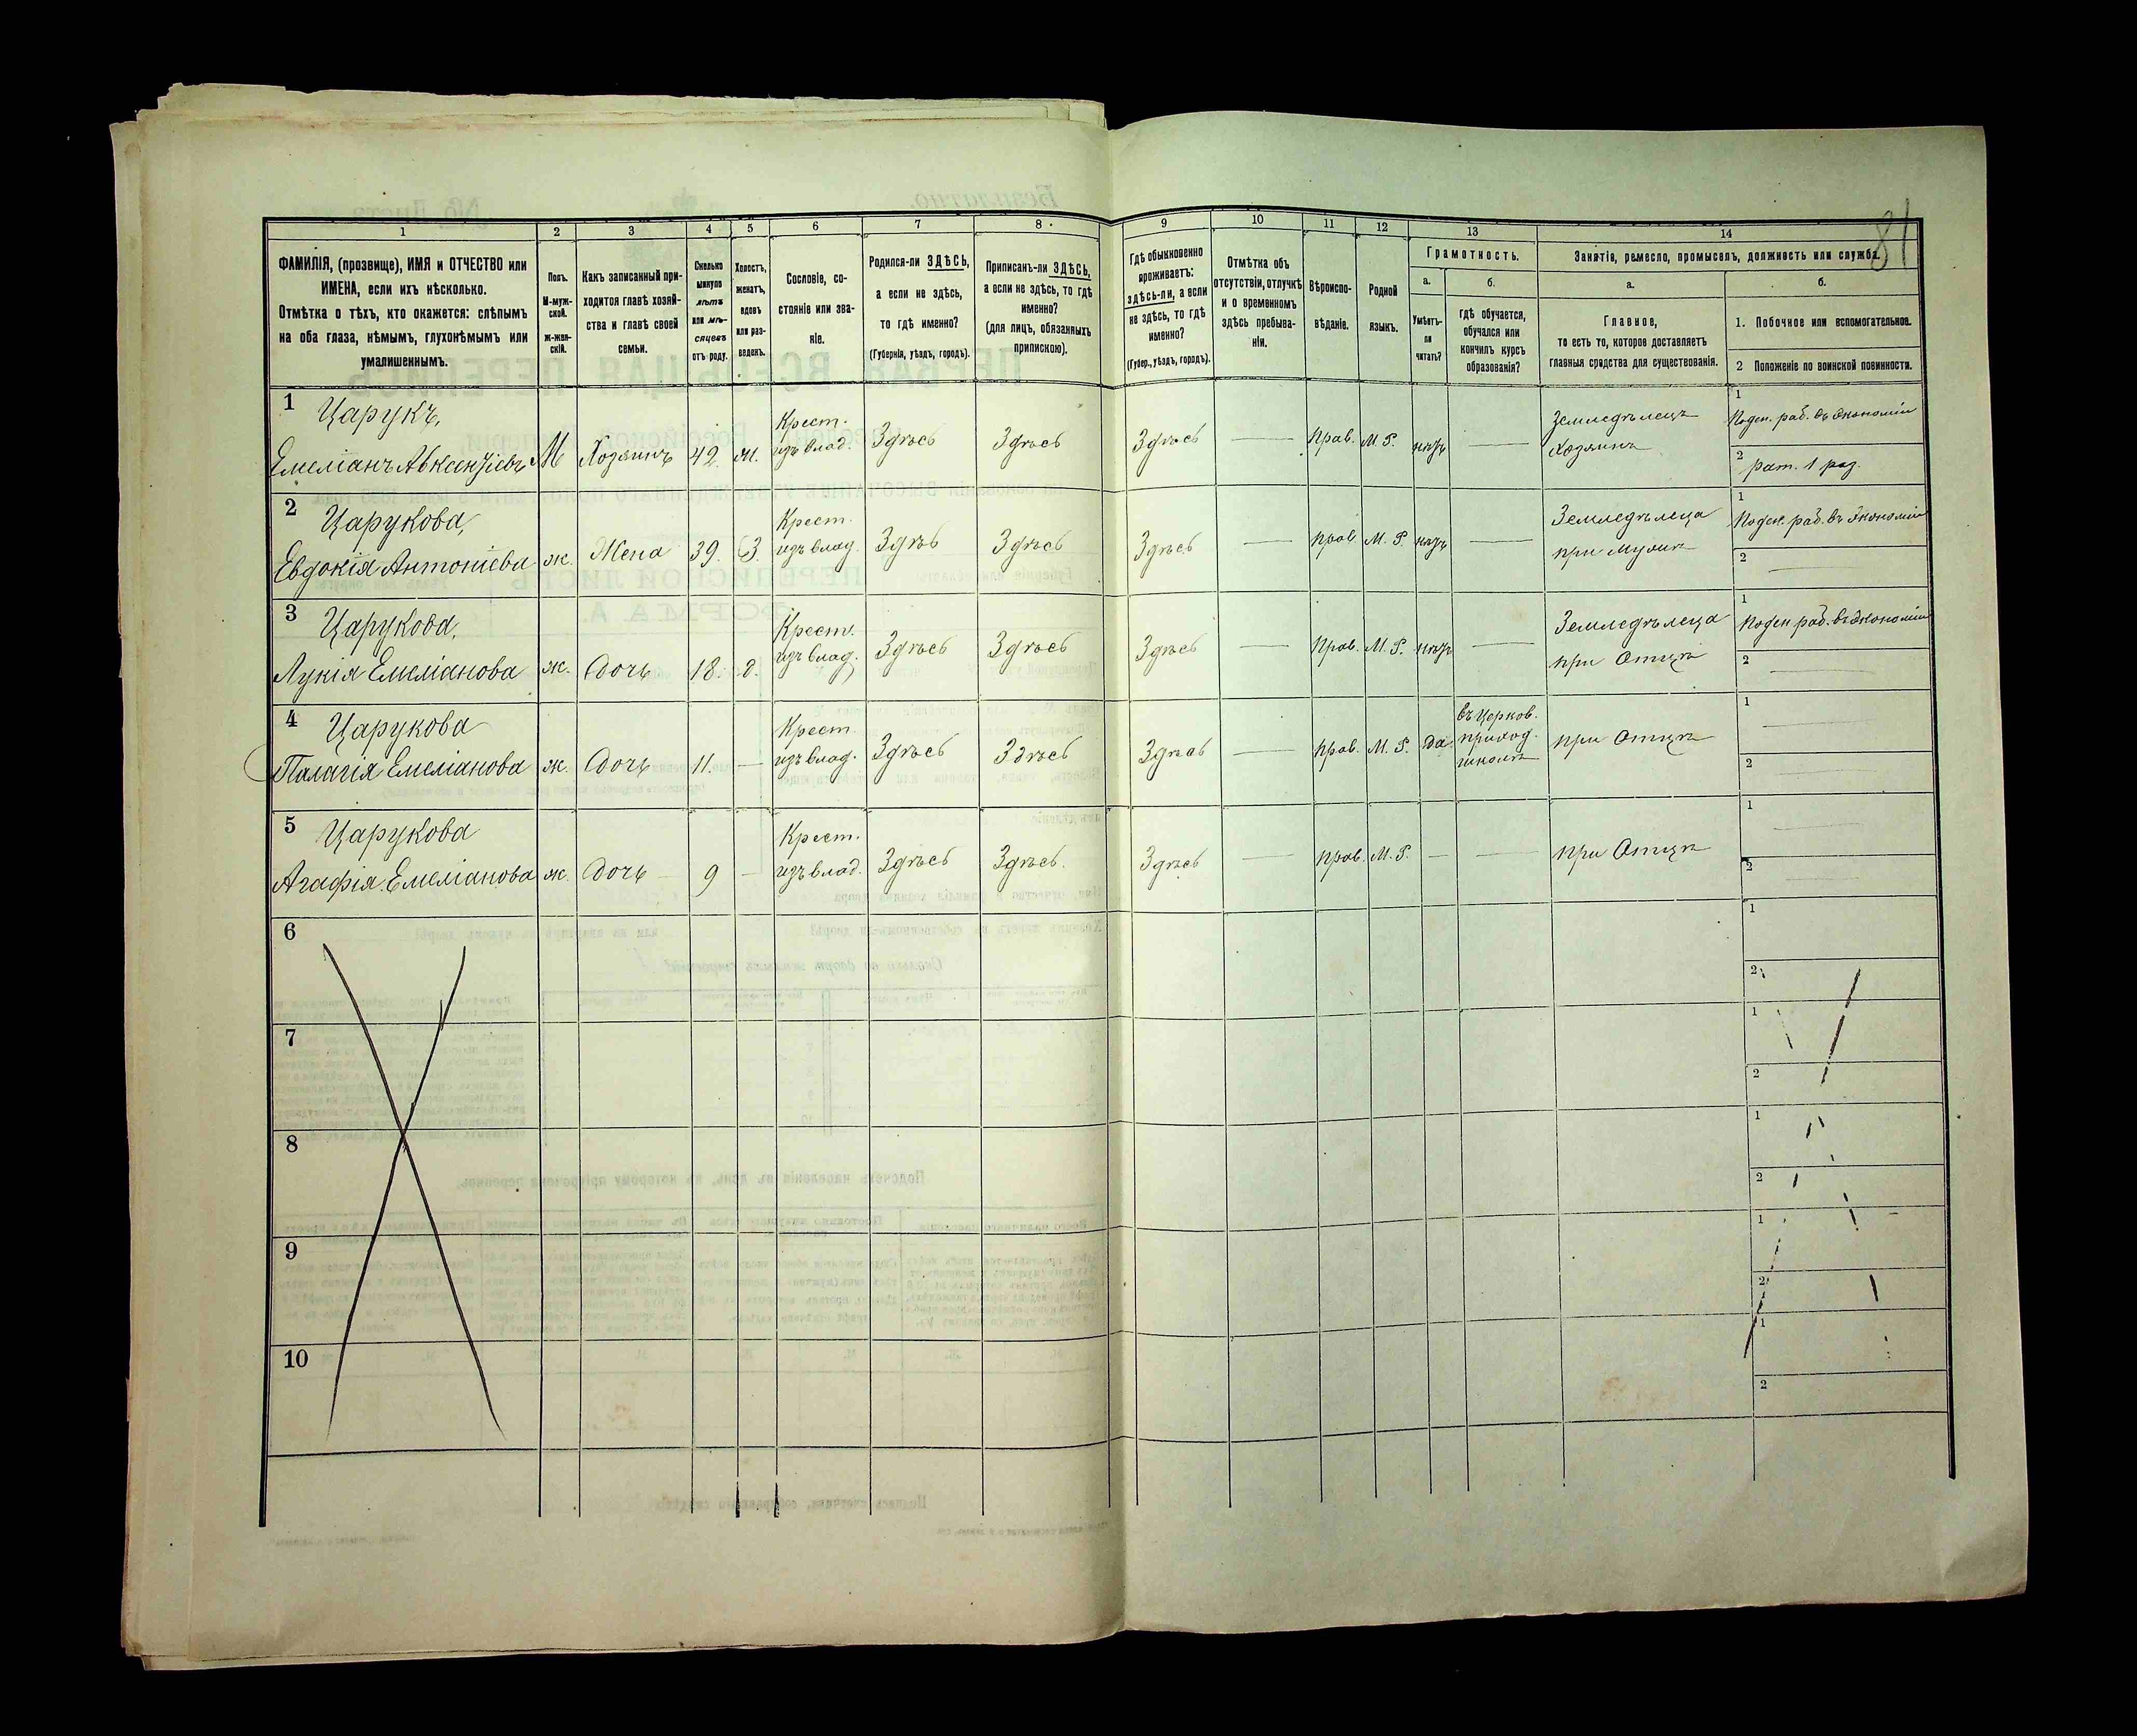 81
1 2 3 4 5 6 7 8 9 10 11 12 13 14
ФАМИЛІЯ, (прозвище), ИМЯ и ОТЧЕСТВО или
ИМЕНА, если ихъ нѣсколько.
Отмѣтка о тѣхъ, кто окажется: слѣпымъ
на оба глаза, нѣмымъ, глухонѣмымъ или
умалишеннымъ.
Полъ.
М-муж-
ской.
ж-жен-
скій.
Какъ записанный при-
ходится главѣ хозяй-
ства и главѣ своей
семьи.
Сколько
минуло
лѣтъ
или мѣ-
сяцевъ
отъ роду.
Холостъ,
женатъ,
вдовъ
или раз-
веденъ.
Сословіе, со-
стояніе или зва-
ніе.
Родился-ли ЗДѢСЬ,
а если не здѣсь,
то гдѣ именно?
(Губернія, уѣздъ, городъ).
Приписанъ-ли ЗДѢСЬ,
а если не здѣсь, то гдѣ
именно?
(для лицъ, обязанныхъ
припискою).
Гдѣ обыкновенно
проживаетъ:
здѣсь-ли, а если
не здѣсь, то гдѣ
именно?
(Губер., уѣздъ, городъ).
Отмѣтка объ
отсутствіи, отлучкѣ
и о временномъ
здѣсь пребыва-
ніи.
Вѣроиспо-
вѣданіе.
Родной
языкъ.
Грамотность.
а.
Умѣетъ-
ли
читать?
б.
гдѣ обучается,
обучался или
кончилъ курсъ
образованія?
Занятіе, ремесло, промыселъ, должность или служба.
а.
Главное,
то есть то, которое доставляетъ
главныя средства для существованія.
б.
1. Побочное или вспомогательное.
2 Положеніе по воинской повинности.
1 Царукъ,
Емеліанъ Авксентіевъ М Хозяинъ 42. ж.
Крест.
изъ влад. Здѣсь Здѣсь Здѣсь — Прав. М. Р. нѣтъ —
Земледѣлецъ
Хозяинъ
1 Поден. раб. въ экономіи
2 рат. 1 раз.
2 Царукова,
Евдокія Антоніева ж. Жена 39. З.
Крест.
изъ влад. Здѣь Здѣсь Здѣсь — Прав. М. Р. нѣтъ —
Земледѣлица
при мужѣ
1 Поден. раб. въ экономіи
2 —
3 Царукова,
Лукія Емеліанова ж. Дочь 18. д.
Крест.
изъ влад. Здѣсь Здѣсь Здѣсь — Прав. М. Р. нѣтъ —
Земледѣлица
при Отцѣ
1 Поден раб. въ экономіи
2 —
4 Царукова
Палагія Емеліанова ж. Дочь 11. —
Крест.
изъ влад. Здѣсь Здѣсь Здѣсь — Прав. М. Р. да.
въ Церков.
приход.
школѣ
при Отцѣ
1 —
2 —
5 Царукова
Агафія Емеліанова ж. Дочь 9 —
Крест.
изъ влад. Здѣсь Здѣсь. Здѣсь — Прав. М. Р. — —
при Отцѣ
1 —
2 —
6
1
2
7
1
2
8
1
2
9
1
2
10
1
2